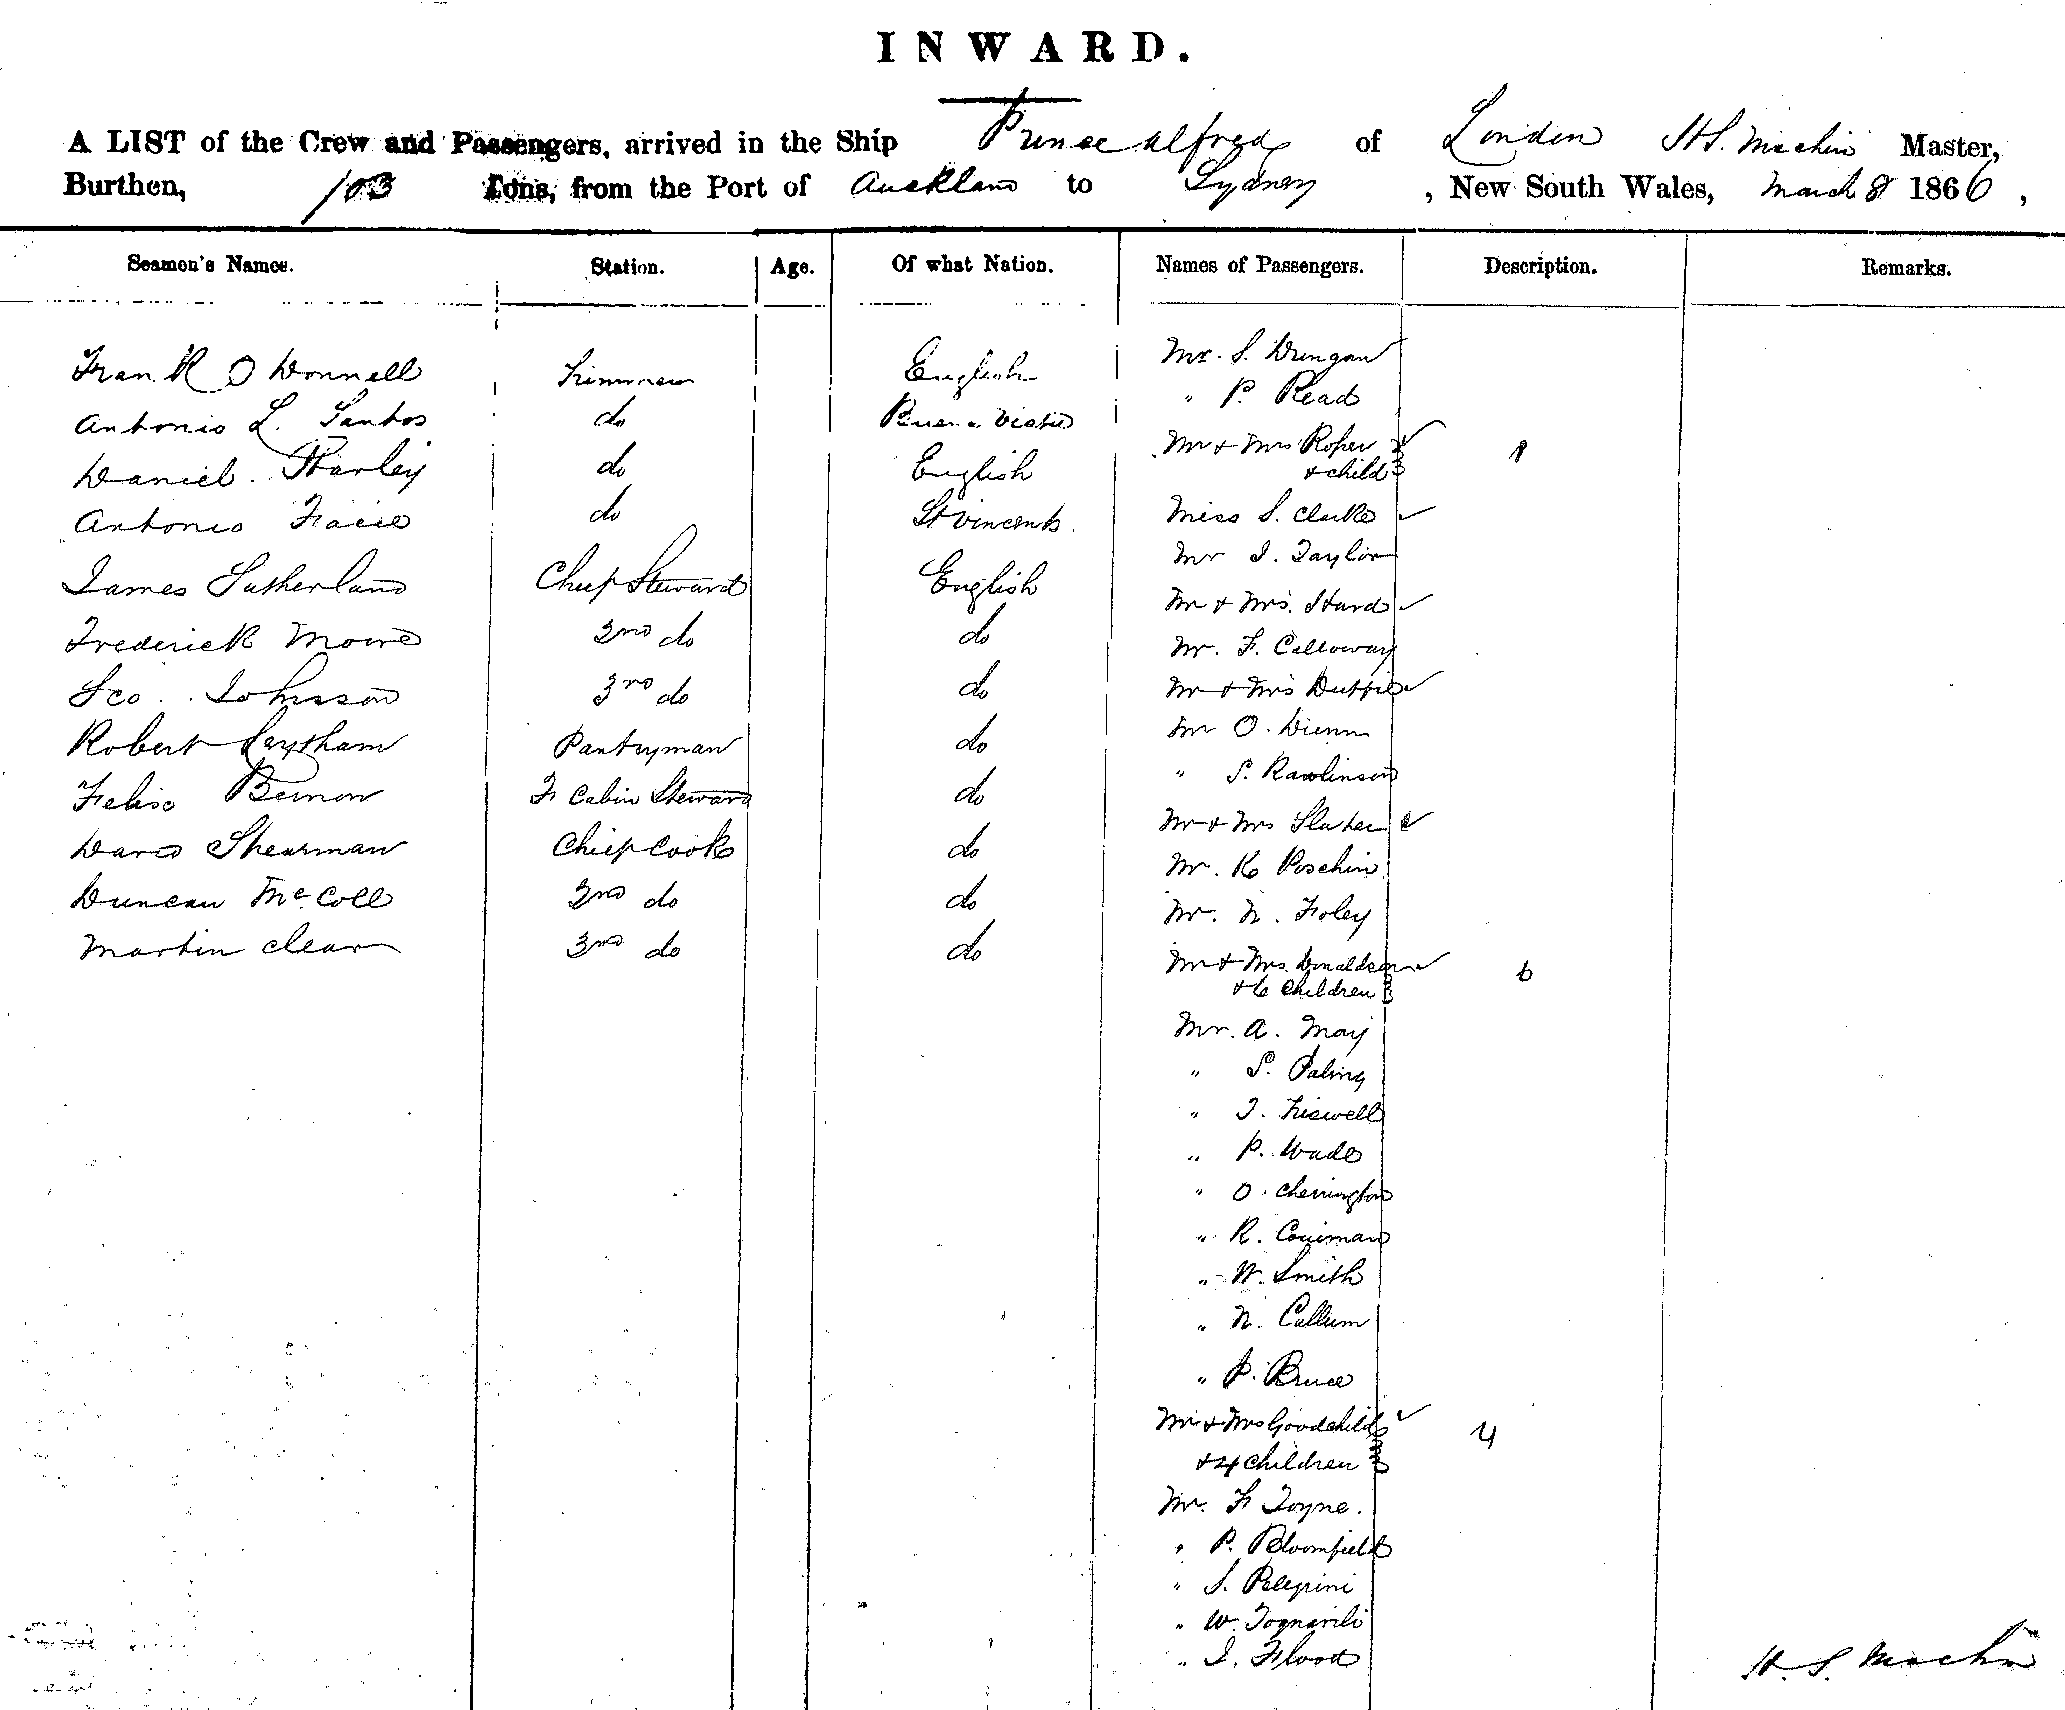 INWARD.
A LIST of the Crew and Passengers, arrived in the Ship Prince Alfred of London H.S. Machin Master,
Burthen, 703 Tons, from the Port of Auckland to Sydney, New South Wales, March 8 1866,
Seamen's Names. Station. Age. Of what Nation. Names of Passengers. Description. Remarks.
Frank O Donnell Trimmer English
Antonio L. Santos do Buena Vista
Daniel Harley do English
Antonio do St Vincents
James Sutherland Chief Steward English
Frederick Moore 2nd do do
Geo. Johnson 3rd do do
Robert Pantryman do
Felise F Cabin Steward do
David Shearman Chief Cook do
Duncan McColl 2nd do do
Martin Clear 3rd do do
Mr. S. Dungan
" P. Read
Mr & Mrs Roper
& child 1
Miss S. Clarke
Mr J. Taylor
Mr & Mrs. Hard
Mr. F. Calloway
Mr & Mrs Duffie
Mr O.
" S. Rawlinson
Mr & Mrs Slater
Mr. K Poschin
Mr. N. Foley
Mr & Mrs. Donaldson
& 6 Children 6
Mr. A. May
" S. Paling
" J. Friswell
" P. Wade
" O. Cherrington
" R.
" W. Smith
" N. Callum
" P. Bruce
Mr & Mrs Goodchild
& 4 children 4
Mr. F Toyne.
" P. Bloomfield
" S. Pelegrini
" W. Tognarili
" J. Flood
H. S. Machin